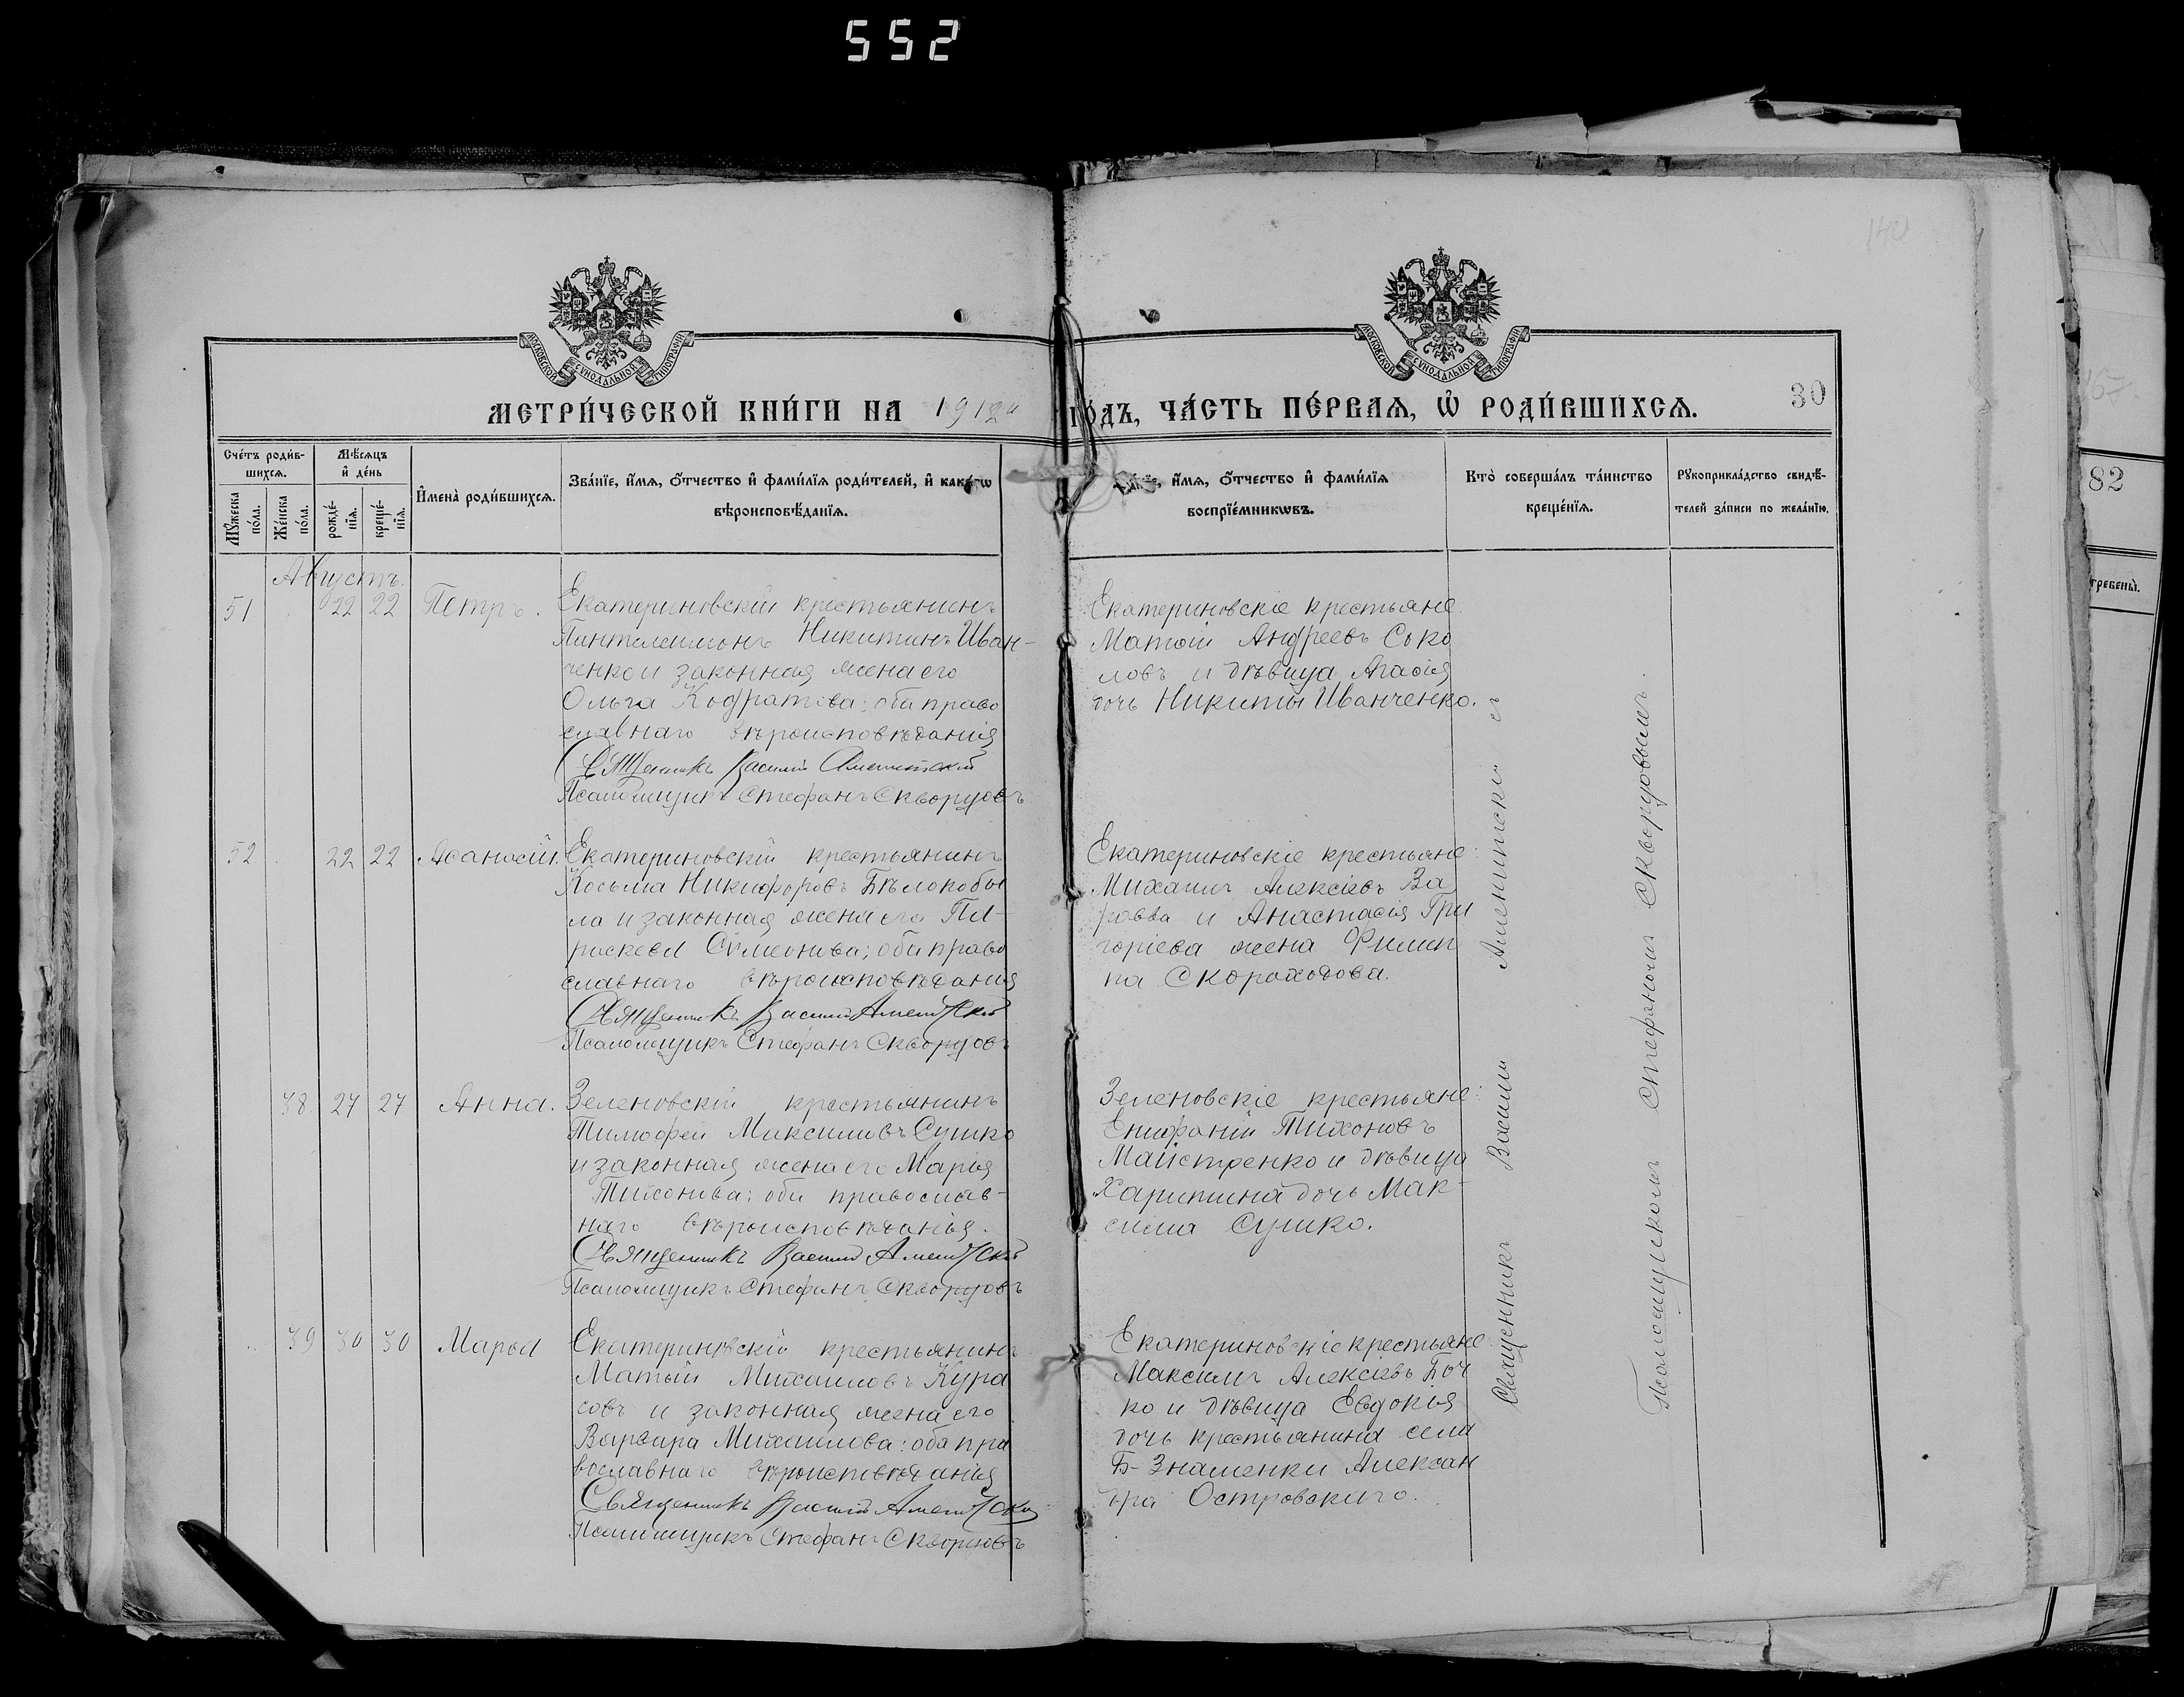 552
140
МОСКОВСКОЙ СѴНОДАЛЬНОЙ ТИПОГРАФІИ
МОСКОВСКОЙ СѴНОДАЛЬНОЙ ТИПОГРАФІИ
МЕТРИ́ЧЕСКОЙ КНИ́ГИ НА 1912й
ГО́ДЪ, ЧА́СТЬ ПЕ́РВАЯ, Ѿ РОДИ́ВШИХСЯ.
30
Сче́тъ роди́в-
шихся.
Мѣ́сяцъ
и҆ де́нь
Мꙋ́жеска по́ла.
Же́нска по́ла.
рожде́-
нїя.
креще́-
нїя.
И҆мена̀ роди́вшихся.
Зва́нїе, и҆́мя, о҆́тчество и҆ фами́лїя роди́телей, и҆ како́гѡ
вѣроисповѣ́данїя.
и҆́мя, о҆́тчество и҆ фами́лїя
воспрїе́мникѡвъ.
Кто̀ соверша́лъ та́инство
креще́нїя.
Рꙋкоприкла́дство свидѣ́-
телей за́писи по жела́нїю.
Августъ.
51 22 22 Петръ.
Екатериновскій крестьянинъ
Пантелеимонъ Никитинъ Иван-
ченко и законная жена его
Ольга Кодратова: оба право
славнаго вѣроисповѣданія
Священникъ Василій Аменитскій
Псаломщикъ Стефанъ Скворцовъ
Екатериновскіе крестьяне
Матѳій Андреевъ Соко
ловъ и дѣвица Агаѳія
дочь Никиты Иванченко.
52 22 22 Аѳанасій.
Екатериновскій крестьянинъ
Косьма Никифоровъ Бѣлокобы
ла и законная жена его Па-
раскева Сѵмеонова; оба право
славнаго вѣроисповѣданія
Священникъ Василій Аменитскій
Псаломщикъ Стефанъ Скворцовъ
Екатериновскіе крестьяне:
Михаилъ Алексіевъ Ва
равва и Анастасія Гри
горіева жена Филип
па Скороходова.
38 27 27 Анна.
Зеленовскій крестьянинъ
Тимоѳей Максимовъ Сушко
и законная жена его Марія
Тихонова: оба православ-
наго вѣроисповѣданія.
Священникъ Василій Аменитскій
Псаломщикъ Стефанъ Скворцовъ
Зеленовскіе крестьяне:
Епифаній Тихоновъ
Майстренко и дѣвица
Харитина дочь Мак-
сима Сушко.
39 30 30 Марѳа
Екатериновскій крестьянинъ
Матѳій Михаиловъ Кура
совъ и законная жена его
Варвара Михаилова: оба пра
вославнаго вѣроисповѣданія
Священникъ Василій Аменитскій
Псаломщикъ Стефанъ Скворцовъ
Екатериновскіе крестьяне
Максимъ Алексіевъ Боч
ко и дѣвица Евдокія
дочь крестьянина села
Б-Знаменки Алексан
дра Островскаго.
Священникъ Василій Аменитскій съ
Псаломщискомъ Стефаномъ Скворцовымъ.
82
гребены̀.